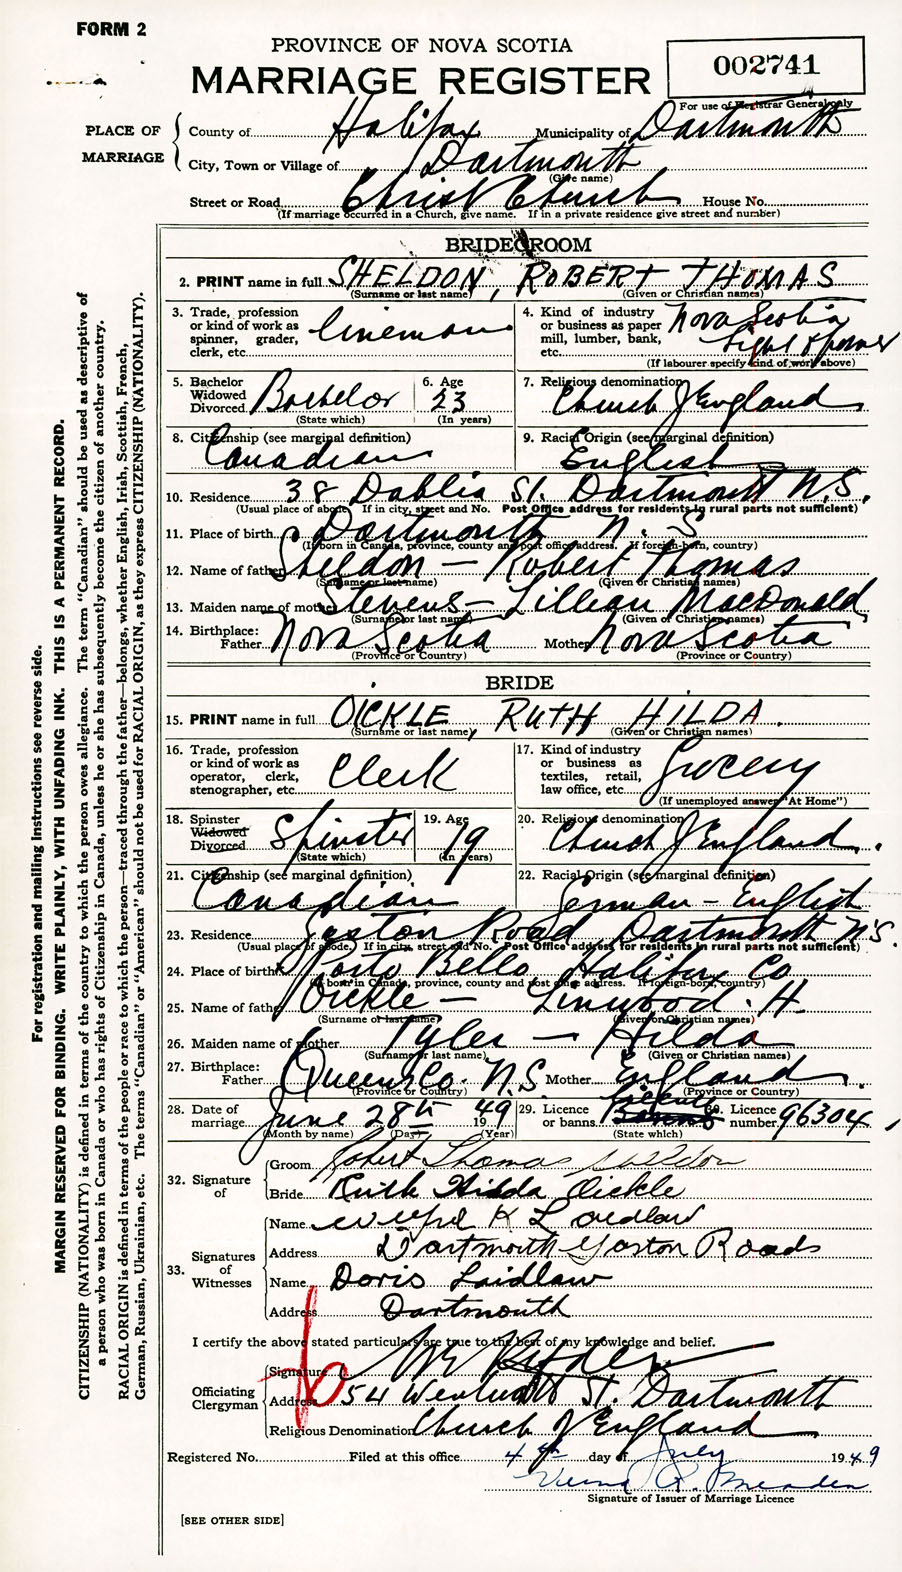 FORM 2
PROVINCE OF NOVA SCOTIA
MARRIAGE REGISTER
002741
For use of Registrar General only
PLACE OF MARRIAGE
County of Halifax Municipality of Dartmouth
City, Town or Village of Dartmouth
(Give name)
Street or Road Christ Church House No.
(If marriage occurred in a Church, give name. If in a private residence give street and number)
BRIDEGROOM
2. PRINT name in full SHELDON, ROBERT THOMAS
(Surname or last name) (Given or Christian names)
3. Trade, profession or kind of work as spinner, grader, clerk, etc. lineman
4. Kind of industry or business as paper mill, lumber, bank, etc. Nova Scotia Light & power
(If labourer specify kind of work above)
5. Bachelor Widowed Divorced Bachelor
(State which)
6. Age 23
(In years)
7. Religious denomination Church of England
8. Citizenship (see marginal definition) Canadian
9. Racial Origin (see marginal definition) English
10. Residence 38 Dahlia St. Dartmouth N.S.
(Usual place of abode. If in city, street and No. Post Office address for residents in rural parts not sufficient)
11. Place of birth Dartmouth N.S.
(If born in Canada, province, county and post office address. If foreign-born, country)
12. Name of father Sheldon — Robert Thomas
(Surname or last name) (Given or Christian names)
13. Maiden name of mother Stevens — Lillian MacDonald
(Surname or last name) (Given or Christian names)
14. Birthplace: Father Nova Scotia Mother Nova Scotia
(Province or Country) (Province or Country)
BRIDE
15. PRINT name in full OICKLE, RUTH HILDA.
(Surname or last name) (Given or Christian names)
16. Trade, profession or kind of work as operator, clerk, stenographer, etc. Clerk
17. Kind of industry or business as textiles, retail, law office, etc. Grocery
(If unemployed answer "At Home")
18. Spinster Widowed Divorced Spinster
(State which)
19. Age 19
(In years)
20. Religious denomination Church of England.
21. Citizenship (see marginal definition) Canadian
22. Racial Origin (see marginal definition) German - English
23. Residence Gaston Road Dartmouth N.S.
(Usual place of abode. If in city, street and No. Post Office address for residents in rural parts not sufficient)
24. Place of birth Porto Bello Halifax Co
(If born in Canada, province, county and post office address. If foreign-born, country)
25. Name of father Oickle — Linwood. H.
(Surname or last name) (Given or Christian names)
26. Maiden name of mother Tyler — Hilda
(Surname or last name) (Given or Christian names)
27. Birthplace: Father Queens Co. N.S. Mother England.
(Province or Country) (Province or Country)
28. Date of marriage June 28th 1949
(Month by name) (Day) (Year)
29. Licence or banns. Licence Banns
(State which)
30. Licence number 96304
32. Signature of
Groom Robert Thomas Sheldon
Bride Ruth Hilda Oickle
33. Signatures of Witnesses
Name K Laidlaw
Address Dartmouth Gaston Roads
Name Doris Laidlaw
Address Dartmouth
I certify the above stated particulars are true to the best of my knowledge and belief.
Officiating Clergyman
Signature
Address 54 Wentworth St. Dartmouth
Religious Denomination Church of England
Registered No. Filed at this office 4th day of July 1949
Signature of Issuer of Marriage Licence
[SEE OTHER SIDE]
For registration and mailing instructions see reverse side.
MARGIN RESERVED FOR BINDING. WRITE PLAINLY, WITH UNFADING INK. THIS IS A PERMANENT RECORD.
CITIZENSHIP (NATIONALITY) is defined in terms of the country to which the person owes allegiance. The term "Canadian" should be used as descriptive of
a person who was born in Canada or who has rights of Citizenship in Canada, unless he or she has subsequently become the citizen of another country.
RACIAL ORIGIN is defined in terms of the people or race to which the person—traced through the father—belongs, whether English, Irish, Scottish, French,
German, Russian, Ukrainian, etc. The terms "Canadian" or "American" should not be used for RACIAL ORIGIN, as they express CITIZENSHIP (NATIONALITY).